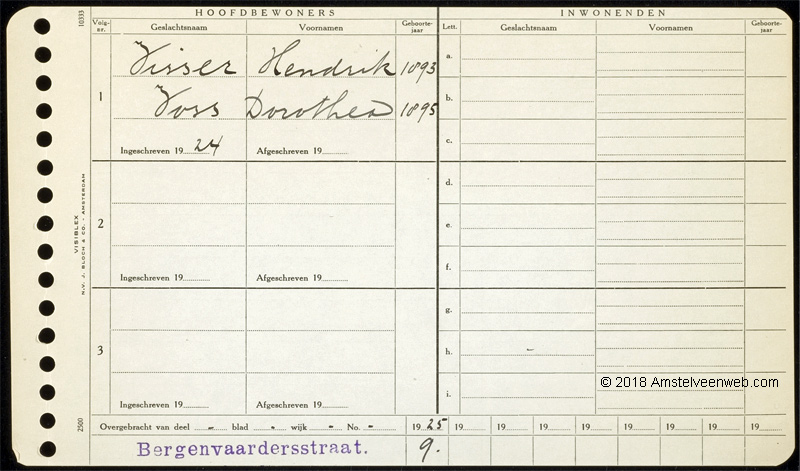 HOOFDBEWONERS INWONENDEN
Volg-nr. Geslachtsnaam Voornamen Geboorte-jaar Lett. Geslachtsnaam Voornamen Geboorte-jaar
10333
Visser Hendrik 1893 a.
1 Voss Dorothea 1895 b.
c.
Ingeschreven 1924 Afgeschreven 19
d.
2 e.
f.
Ingeschreven 19 Afgeschreven 19
VISIBLEX
N.V. J. BLOCH & CO. - AMSTERDAM
g.
3 h.
i.
Ingeschreven 19 Afgeschreven 19
© 2018 Amstelveenweb.com
2500
Overgebracht van deel - blad - wijk - No. - 1925 19 19 19 19 19 19 19 19
Bergenvaardersstraat. 9.